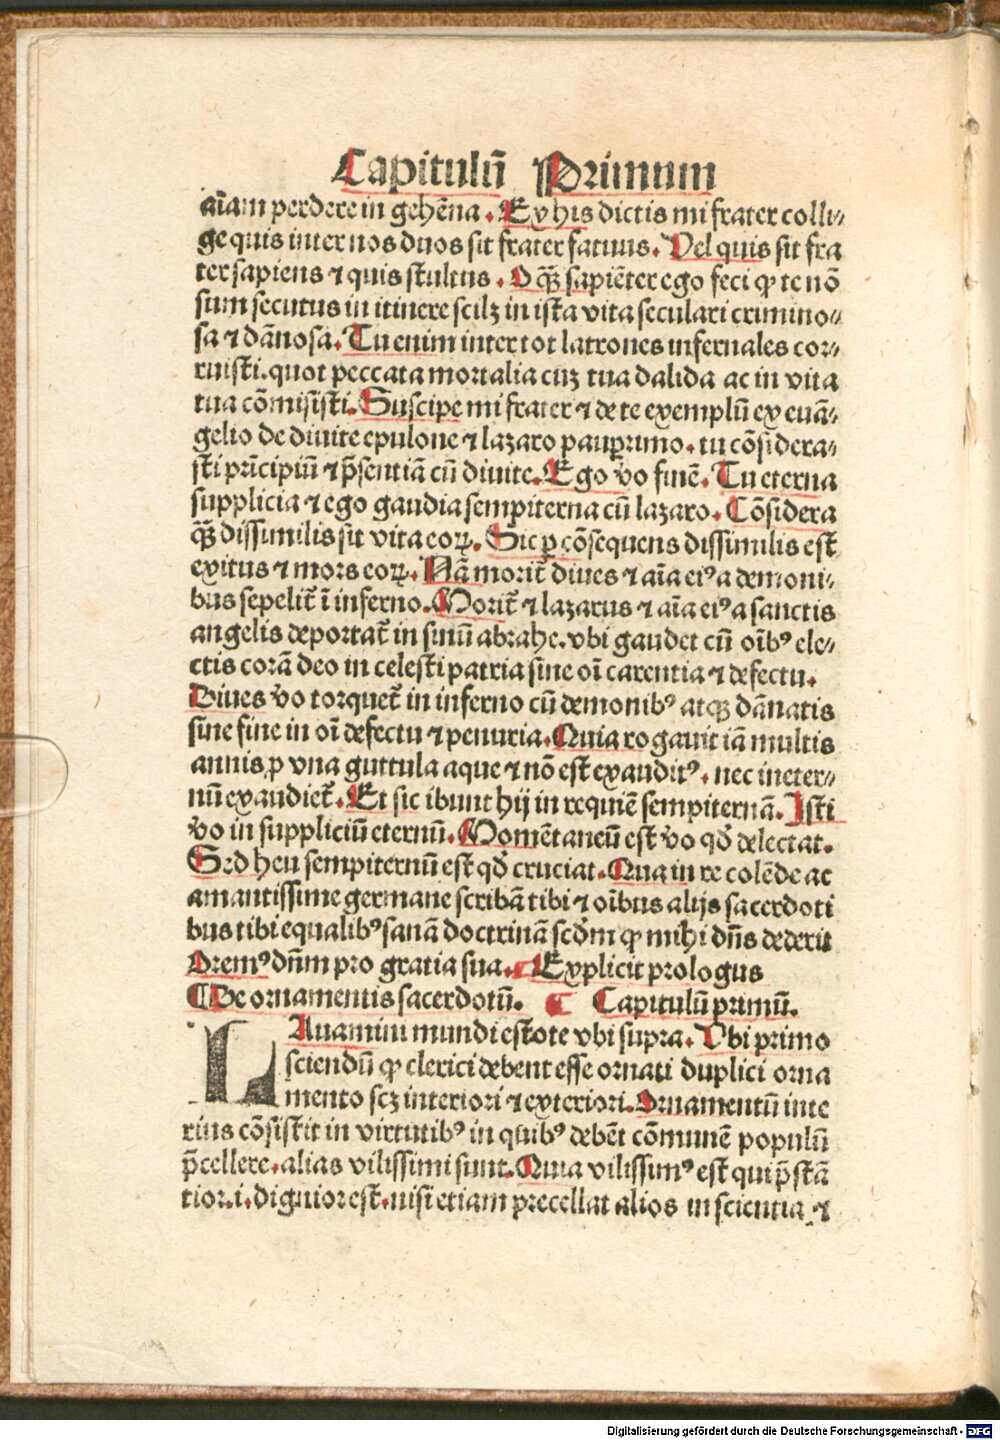 Capitulū Primum
aīam perdere in gehēna. Ex his dictis mi frater colli⸗
ge quis inter nos duos sit frater fatuus. Vel quis sit fra
ter sapiens ⁊ quis stultus. O q̄ꝫ sapiēter ego feci ꝙ te nō
sum secutus in itinere scilꝫ in ista vita seculari crimino⸗
sa ⁊ dānosa. Tu enim inter tot latrones infernales cor⸗
ruisti. quot peccata mortalia cuꝫ tua dalida ac in vita
tua cōmisisti. Suscipe mi frater ⁊ de te exemplū ex euā⸗
gelio de diuite epulone ⁊ lazaro pauꝑrimo. tu cōsidera⸗
sti prīcipiū ⁊ p̄sentiā cū diuite. Ego v̄o finē. Tu eterna
supplicia ⁊ ego gaudia sempiterna cū lazaro. Cōsidera
q̄ꝫ dissimilis sit vita eoꝝ. Sic ꝑ cōsequens dissimilis est
exitus ⁊ mors eoꝝ. Nā morit̄ diues ⁊ aīa eiꝰ a demoni⸗
bus sepelit̄ ī inferno. Morit̄ ⁊ lazarus ⁊ aīa eiꝰ a sanctis
angelis deportat̄ in sinū abrahe. vbi gaudet cū oībꝰ ele⸗
ctis corā deo in celesti patria sine oī carentia ⁊ defectu.
Diues v̄o torquet̄ in inferno cū demonibꝰ atqꝫ dānatis
sine fine in oī defectu ⁊ penuria. Quia rogauit iā multis
annis ꝓ vna guttula aque ⁊ nō est exauditꝰ. nec in eter⸗
nū exaudiet̄. Et sic ibunt hij in requiē sempiternā. Isti
v̄o in suppliciū eternū. Momētaneū est v̄o qd̄ delectat.
Sed heu sempiternū est qd̄ cruciat. Qua in re colēde ac
amantissime germane scribā tibi ⁊ oībus alijs sacerdoti
bus tibi equalibꝰ sanā doctrinā scd̄m ꝙ mihi dn̄s dederit
Oremꝰ dn̄m pro gratia sua. ¶ Explicit prologus
¶ De ornamentis sacerdotū. ¶ Capitulū primū.
LAuamini mundi estote vbi supra. Vbi primo
sciendū ꝙ clerici debent esse ornati duplici orna
mento scꝫ interiori ⁊ exteriori. Ornamentū inte
rius cōsistit in virtutibꝰ in qͥbꝰ debēt cōmunē populū
p̄cellere. alias vilissimi sunt. Quia vilissimꝰ est qui p̄stā
tior .i. dignior est. nisi etiam precellat alios in scientia ⁊
Digitalisierung gefördert durch die Deutsche Forschungsgemeinschaft - DFG